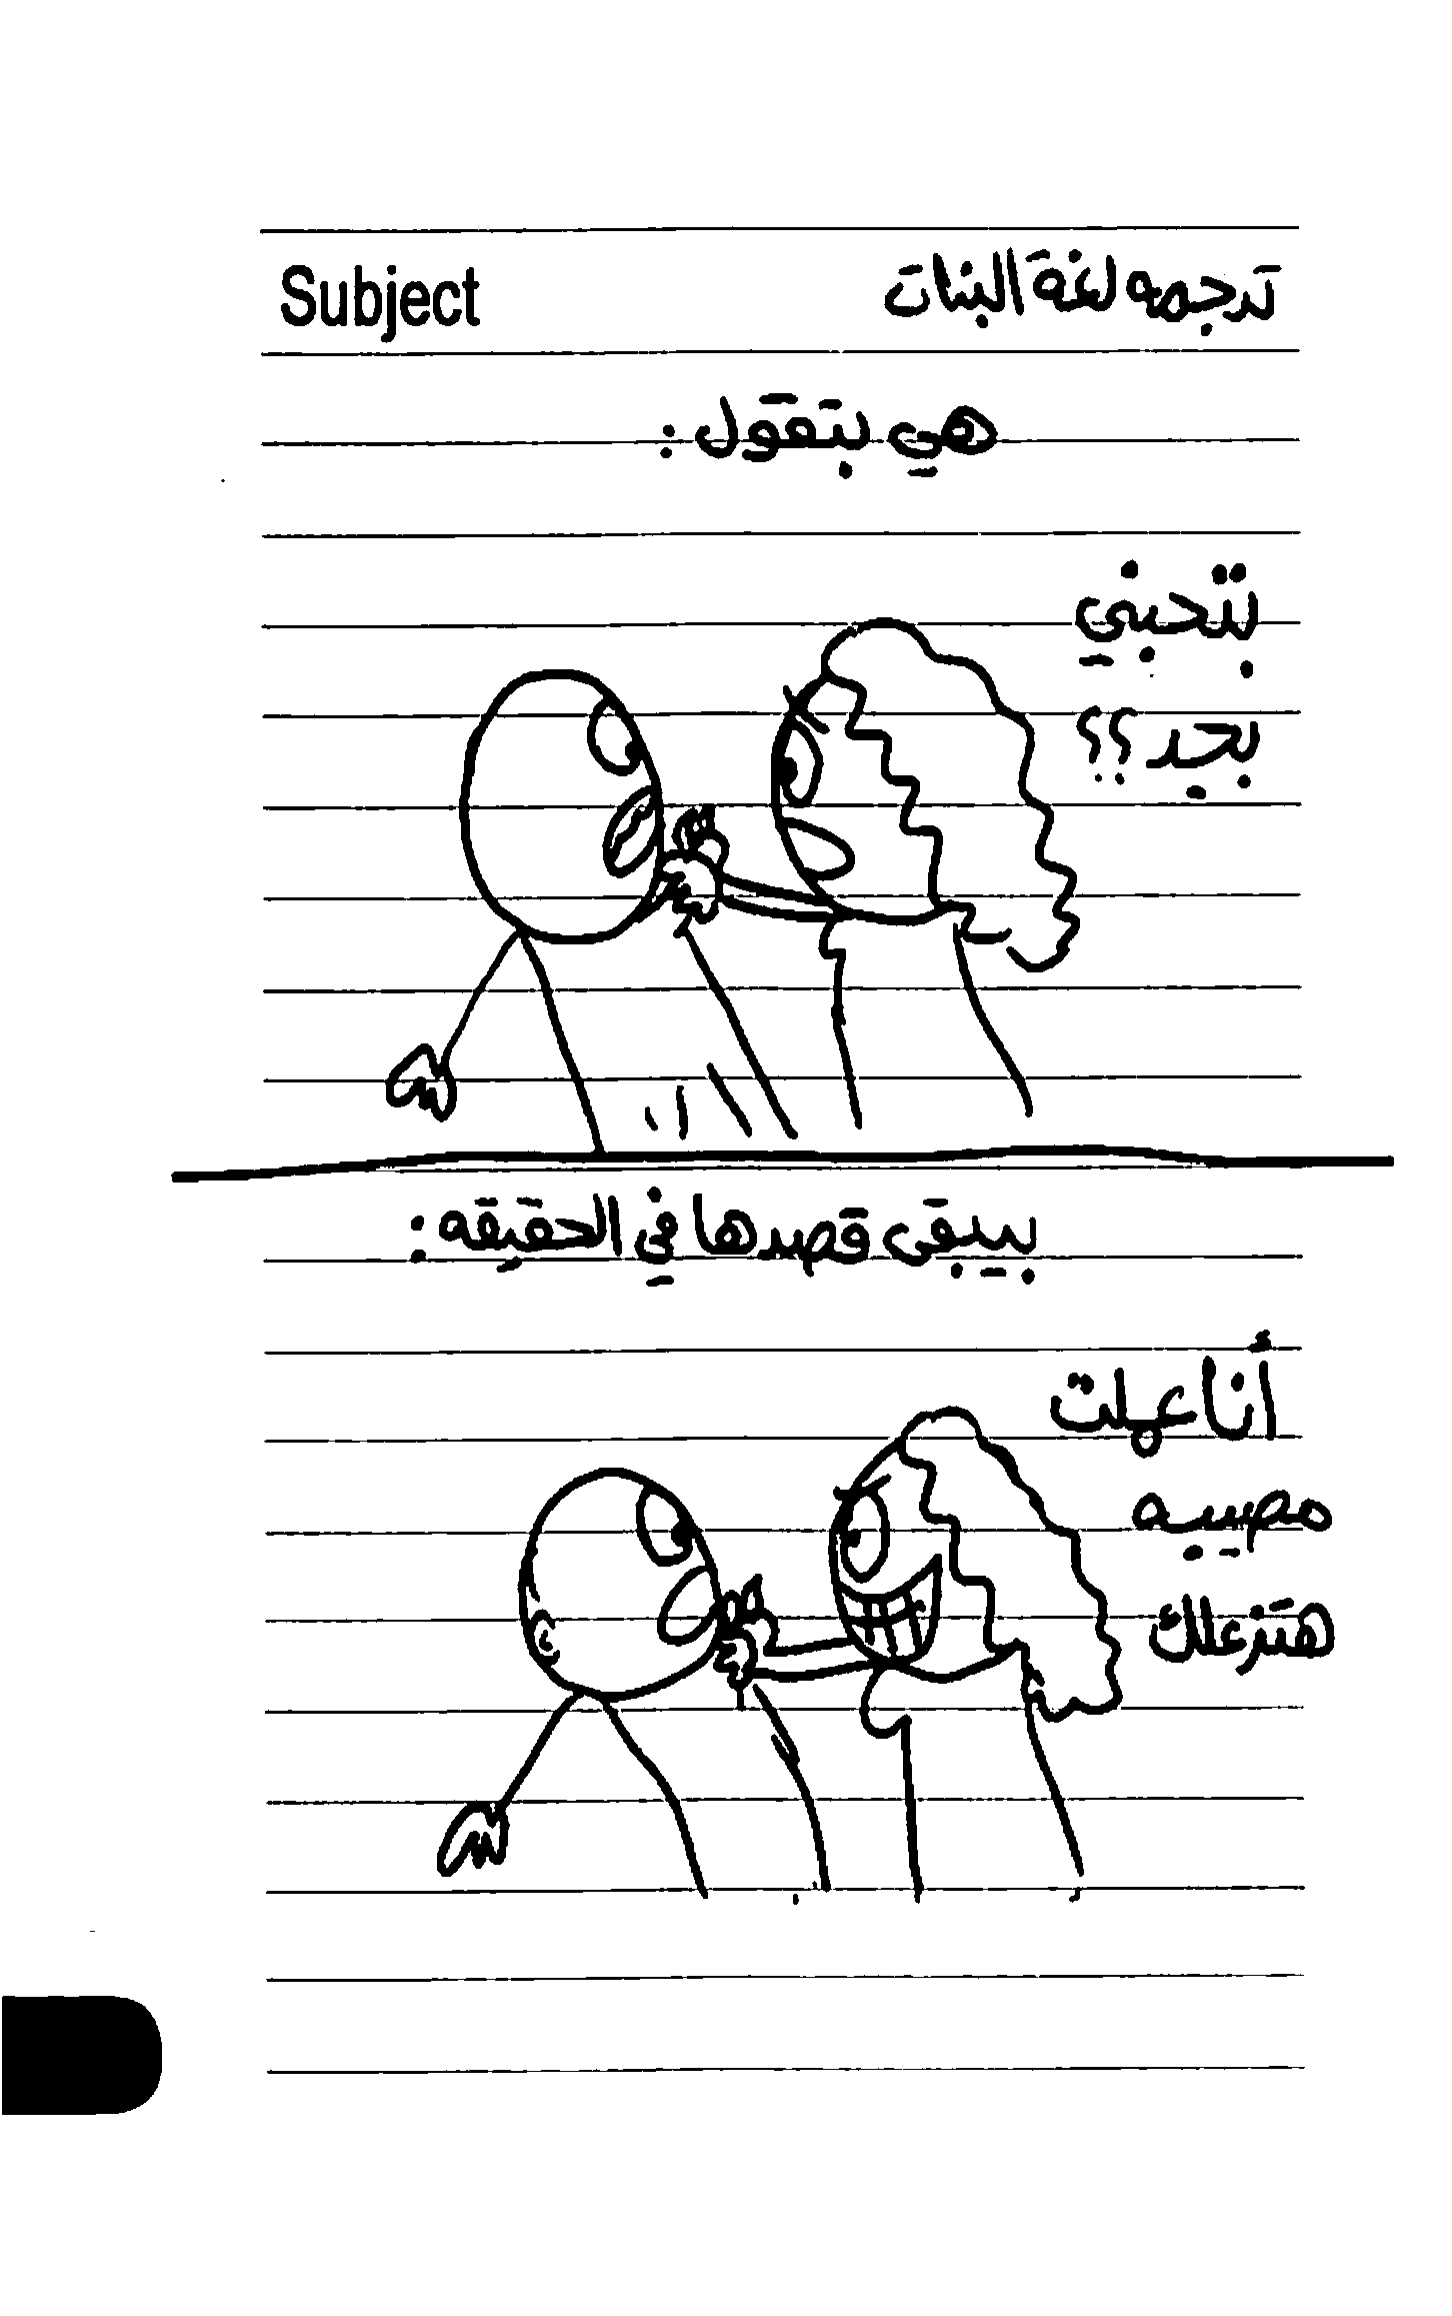 Subject ترجمه لغة البنات
هي بتقول:
بتحبني
بجد؟؟
بيبقى قصدها في الحقيقه:
أنا عملت
مصيبه
هتزعلك